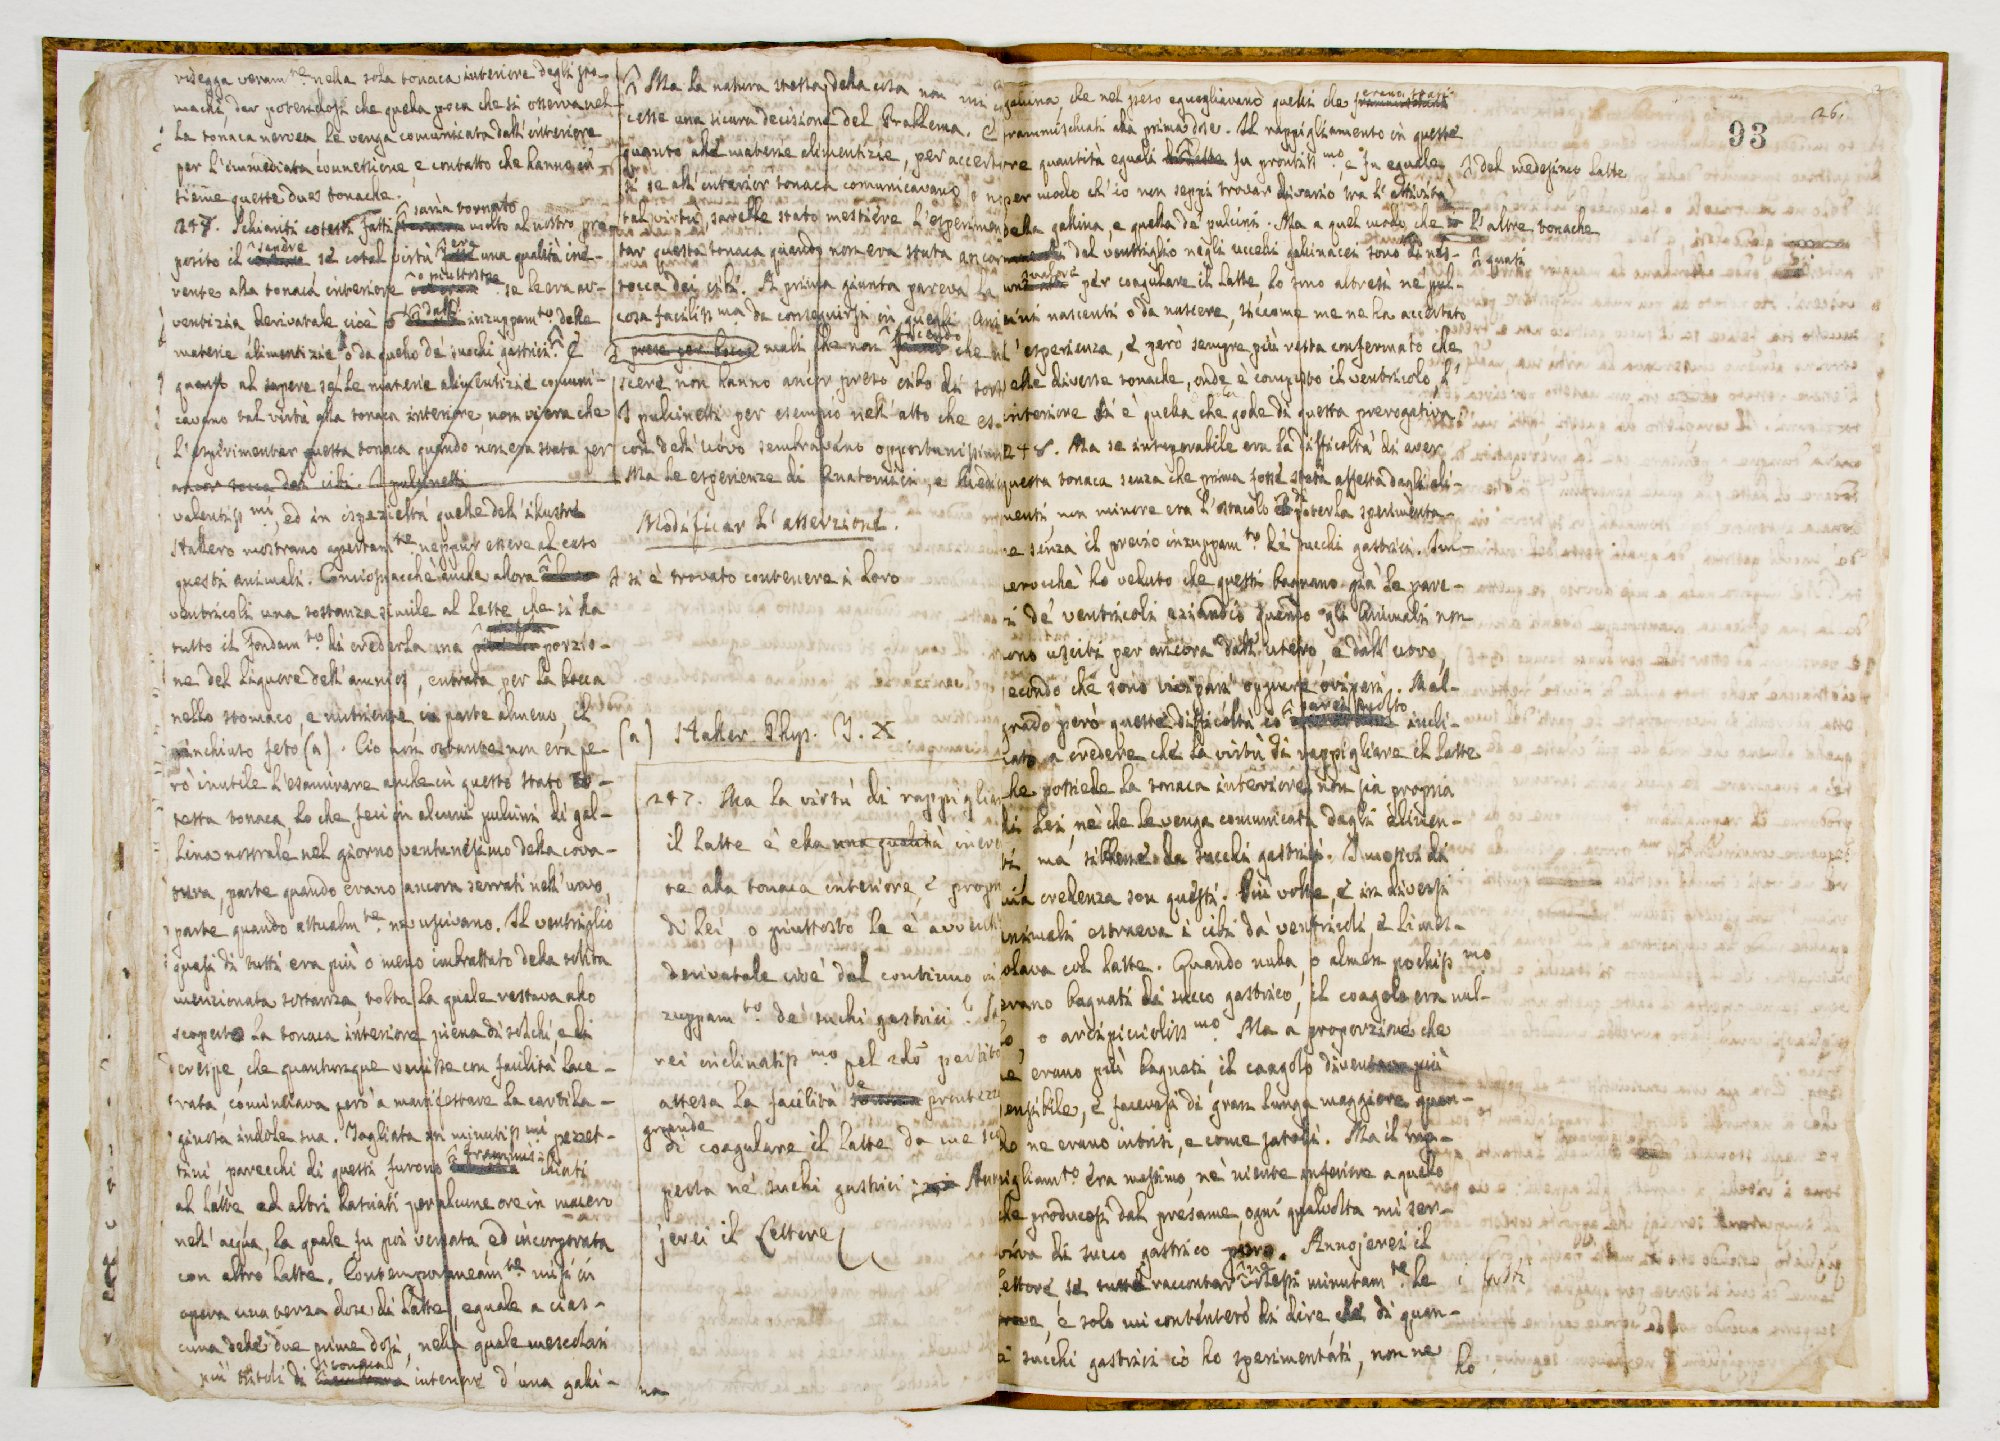 risegga veram.te nella sola tonaca interiore degli sto-
machi, dar potendosi che quella poca che si osserva nel-
la tonaca nervea le venga comunicata dall'interiore
per l'immediata connessione, e contatto che hanno in-
sieme queste due tonache.
247. Schiariti cotesti fatti saria tornato molto al nostro pro-
posito il sapere se cotal virtù era una qualità ine-
rente alla tonaca interiore o piuttosto se le era av-
ventizia derivatale cioè o dall' inzuppam.to delle
materie alimentizie o da quello de' succhi gastrici. E
quanto al sapere se le materie alimentizie comuni-
cavano tal virtù alla tonaca interiore, non vi era che
l'esperimentar questa tonaca quando non era stata per
ancor tocca dei cibi. I pulcinetti
valentiss.mi, ed in ispezieltà quelle dell'illustre
Hallero mostrano apertam.te neppur essere al caso
questi animali. Conciossiacchè anche allora
ventricoli una sostanza simile al latte che si ha
tutto il fondam.to di crederla una porzio-
ne del liquore dell'amnios, entrata per la bocca
nello stomaco, e nutriente, in parte almeno, il
rinchiuto feto (a). Ciò non ostante non era pe-
rò inutile l'esaminare anche in questo stato co-
testa tonaca, lo che feci in alcuni pulcini di gal-
lina nostrale nel giorno ventunesimo della cova-
tura, parte quando erano ancora serrati nell'uovo,
parte quando attualm.te ne uscivano. Il ventriglio
quasi di tutti era più o meno imbrattato della solita
menzionata sostanza, tolta la quale restava allo
scoperto la tonaca interiore piena di solchi, e di
crespe, che quantunque venisse con facilità lace-
rata, cominciava però a manifestare la cartila-
ginosa indole sua. Tagliata in minutiss.mi pezzet-
tini, parecchi di questi furono frammis-chiati
al latte ed altri lasciati per alcune ore in macero
nell'acqua, la quale fu poi versata, ed incorporata
con altro latte. Contemporaneam.te misi in
opera una terza dose di latte, eguale a cias-
cuna delle due prime dosi, nella quale mescolai
più ritoli di tonaca interiore d'una galli-
na
Ma la natura stessa della cosa non mi
cesse una sicura decisione del Problema. E
quanto alle materie alimentizie, per accert
si se all'interior tonaca comunicavano, o n
tal virtù, sarebbe stato mestiere l'esperimen
tar questa tonaca quando non era stata ancor
tocca dei cibi. A prima giunta pareva la
cosa faciliss.ma da conseguirsi in quegli Ani
prese per bocca mali che non facendo che n
scere non hanno ancor preso cibo di sort
I pulcinetti per esempio nell'atto che es-
con dell'uovo sembravano opportunissimi
Ma le esperienze di Anatomici, e Medic
Modificar l'asserzione.
si è trovato contenere i loro
(a) Haller Phys. T. X
247. Ma la virtù di rappigliar
il latte è ella una qualità ineren
te alla tonaca interiore, e propri
di lei, o piuttosto le è avventi
derivatale cioè dal continuo in
zuppam.to de' suchi gastrici? Sa
rei inclinatiss.mo pel 2do partito
attesa la facilità e prontezza
grande
di coagulare il latte da me sco
perta ne' suchi gastrici Anno
jerei il Lettore
93
26.
gallina, che nel peso eguagliavano quelli che erano stati
frammischiati alla prima dose. Il rappigliamento in queste
tre quantità eguali fu prontiss.mo, e fu eguale, del medesimo latte
per modo ch'io non seppi trovar divario tra l'attività
della gallina, e quella de' pulcini. Ma a quel modo che l'altre tonache
del ventriglio negli uccelli gallinacei sono di nes- quasi
un valore per coagulare il latte, lo sono altresì ne' pul-
cini nascenti o da nascere, siccome me ne ha accertato
l'esperienza, e però sempre più resta confermato che
delle diverse tonache, onde è composto il ventricolo, l'
interiore si è quella che gode di questa prerogativa.
248. Ma se insuperabile era la difficoltà di aver
questa tonaca senza che prima fosse stata affetta dagli ali-
menti, non minore era l'ostacolo di poterla sperimenta-
re senza il previo inzuppam.to de' succhi gastrici. Im-
perocchè ho veduto che questi bagnano già le pare-
ti de' ventricoli eziandio quando gli Animali non
sono usciti per ancora dall'utero, e dall'uovo,
secondo che sono vivipari oppure ovipari. Mal-
grado però queste difficoltà io sarei molto incli-
nato a credere che la virtù di rappigliare il latte
che possiede la tonaca interiore non sia propria
di lei, nè che le venga comunicata dagli alimen-
ti, ma sibbene da succhi gastrici. I motivi di
mia credenza son questi. Più volte, e in diversi
animali estraeva i cibi da' ventricoli, e li mes-
colava col latte. Quando nulla, o almen pochiss.mo
erano bagnati di succo gastrico, il coagolo era nul-
lo, o arcipicciolis.mo. Ma a proporzione che
ne erano più bagnati, il coagolo diventava più
sensibile, e facevasi di gran lunga maggiore quan-
do ne erano intrisi, e come satolli. Ma il rap-
pigliam.to era massimo, nè niente inferiore a quello
che producesi dal presame, ogni qualvolta mi ser-
viva di succo gastrico puro. Annojerei il
Lettore se tutte raccontar volessi minutam.te le i fatti
prove, e solo mi contenterò di dire che di quan-
ti succhi gastrici ciò ho sperimentati, non ne
ho